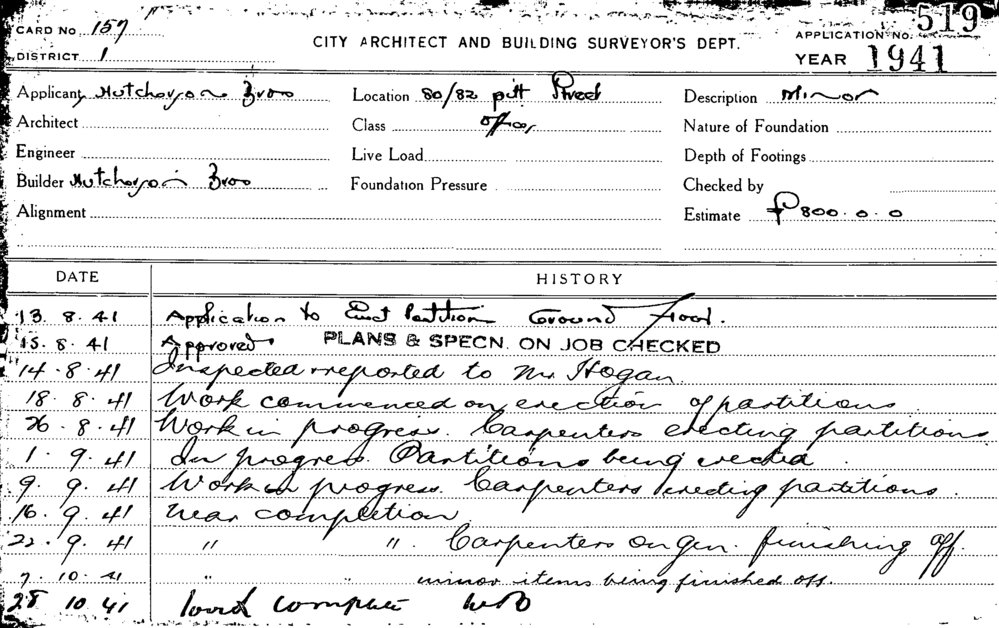 CARD NO. 157
DISTRICT 1
CITY ARCHITECT AND BUILDING SURVEYOR'S DEPT.
APPLICATION NO. 519
YEAR 1941
Applicant Hutcherson Bros Location 80/82 pitt Street Description Minor
Architect Class offices Nature of Foundation
Engineer Live Load Depth of Footings
Builder Hutcherson Bros Foundation Pressure Checked by
Alignment Estimate £800.0.0
DATE HISTORY
13.8.41 Application to Erect Partition Ground Floor.
15.8.41 Approved. PLANS & SPECN. ON JOB CHECKED
14.8.41 Inspected & reported to Mr Hogan
18.8.41 Work commenced on erection of partitions
26.8.41 Work in progress. Carpenters erecting partitions
1.9.41 In progress. Partitions being erected.
9.9.41 Work in progress. Carpenters erecting partitions.
16.9.41 Near completion
22.9.41 " ". Carpenters on gen. finishing off.
7.10.41 " " minor items being finished off.
28 10 41 complete